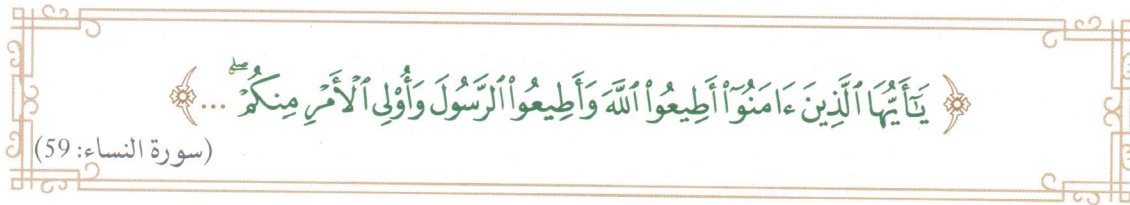 ﴿ يَٰٓأَيُّهَا ٱلَّذِينَ ءَامَنُوٓا۟ أَطِيعُوا۟ ٱللَّهَ وَأَطِيعُوا۟ ٱلرَّسُولَ وَأُو۟لِى ٱلْأَمْرِ مِنكُمْ ۖ ... ﴾
(سورة النساء: 59)